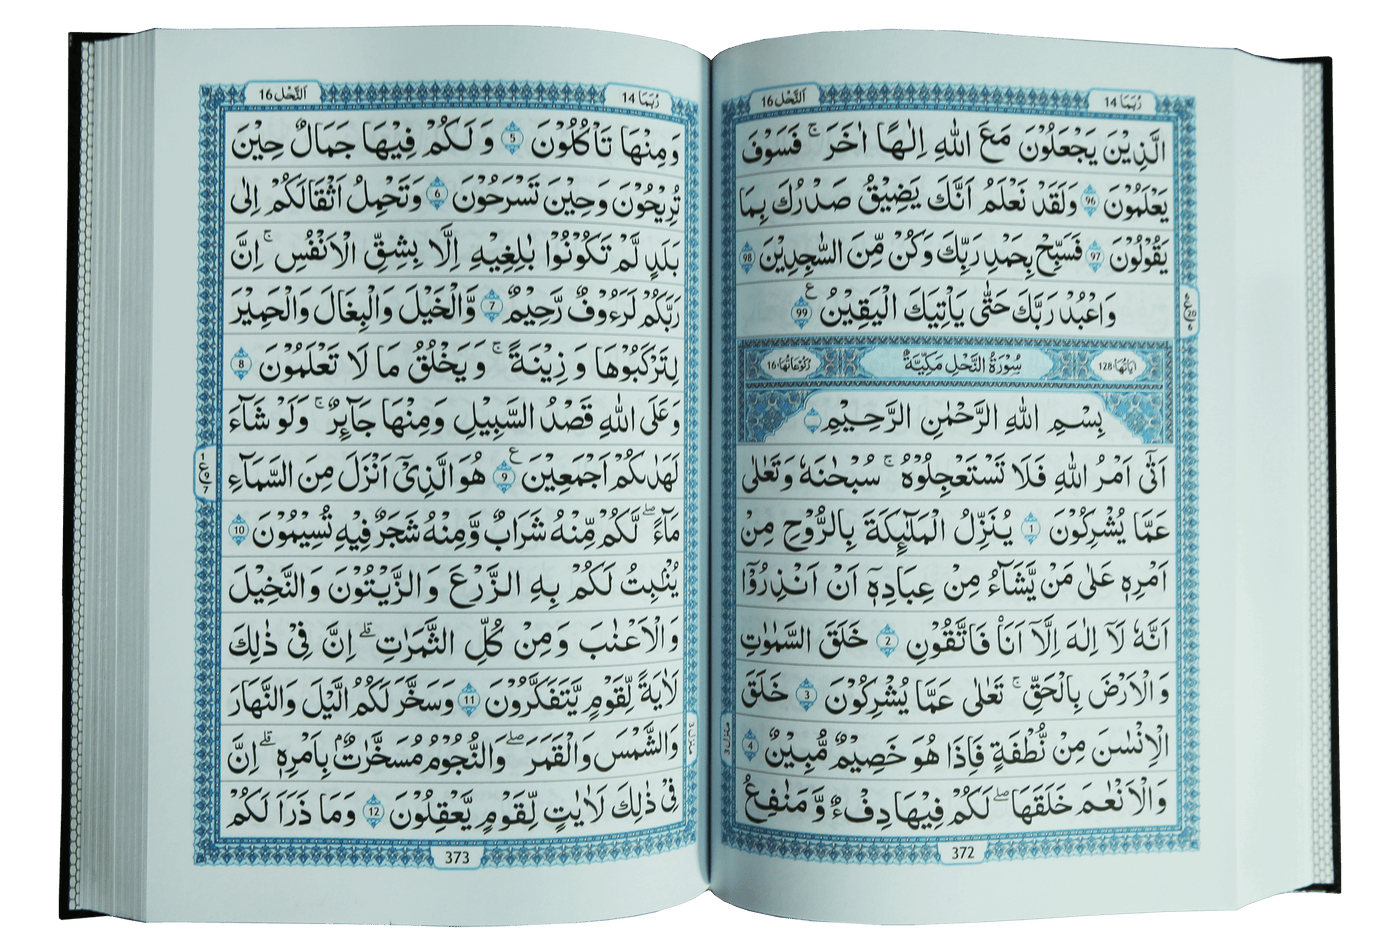 رُبَمَا 14
اَلنَّحْل 16
الَّذِيْنَ يَجْعَلُوْنَ مَعَ اللّٰهِ اِلٰهًا اٰخَرَ ۚ فَسَوْفَ
يَعْلَمُوْنَ 96 وَلَقَدْ نَعْلَمُ اَنَّكَ يَضِيْقُ صَدْرُكَ بِمَا
يَقُوْلُوْنَ 97 فَسَبِّحْ بِحَمْدِ رَبِّكَ وَكُنْ مِّنَ السّٰجِدِيْنَ 98
وَاعْبُدْ رَبَّكَ حَتّٰى يَاْتِيَكَ الْيَقِيْنُ 99 ع
اٰيَاتُهَا 128
سُوْرَةُ النَّحْلِ مَكِّيَّةٌ
رُكُوْعَاتُهَا 16
بِسْمِ اللّٰهِ الرَّحْمٰنِ الرَّحِيْمِ
اَتٰٓى اَمْرُ اللّٰهِ فَلَا تَسْتَعْجِلُوْهُ ۚ سُبْحٰنَهٗ وَتَعٰلٰى
عَمَّا يُشْرِكُوْنَ 1 يُنَزِّلُ الْمَلٰٓئِكَةَ بِالرُّوْحِ مِنْ
اَمْرِهٖ عَلٰى مَنْ يَّشَآءُ مِنْ عِبَادِهٖٓ اَنْ اَنْذِرُوْٓا
اَنَّهٗ لَآ اِلٰهَ اِلَّآ اَنَا۠ فَاتَّقُوْنِ 2 خَلَقَ السَّمٰوٰتِ
وَالْاَرْضَ بِالْحَقِّ ۚ تَعٰلٰى عَمَّا يُشْرِكُوْنَ 3 خَلَقَ
الْاِنْسٰنَ مِنْ نُّطْفَةٍ فَاِذَا هُوَ خَصِيْمٌ مُّبِيْنٌ 4
وَالْاَنْعٰمَ خَلَقَهَا ۖ لَكُمْ فِيْهَا دِفْءٌ وَّ مَنٰفِعُ
منزل 3
372
رُبَمَا 14
اَلنَّحْل 16
وَمِنْهَا تَاْكُلُوْنَ 5 وَ لَكُمْ فِيْهَا جَمَالٌ حِيْنَ
تُرِيْحُوْنَ وَحِيْنَ تَسْرَحُوْنَ 6 وَتَحْمِلُ اَثْقَالَكُمْ اِلٰى
بَلَدٍ لَّمْ تَكُوْنُوْا بٰلِغِيْهِ اِلَّا بِشِقِّ الْاَنْفُسِ ۚ اِنَّ
رَبَّكُمْ لَرَءُوْفٌ رَّحِيْمٌ 7 وَّالْخَيْلَ وَالْبِغَالَ وَالْحَمِيْرَ
لِتَرْكَبُوْهَا وَ زِيْنَةً ۚ وَ يَخْلُقُ مَا لَا تَعْلَمُوْنَ 8
وَعَلَى اللّٰهِ قَصْدُ السَّبِيْلِ وَمِنْهَا جَآئِرٌ ۚ وَلَوْ شَآءَ
لَهَدٰىكُمْ اَجْمَعِيْنَ 9 ع هُوَ الَّذِيْٓ اَنْزَلَ مِنَ السَّمَآءِ
مَآءً ۖ لَّكُمْ مِّنْهُ شَرَابٌ وَّمِنْهُ شَجَرٌ فِيْهِ تُسِيْمُوْنَ 10
يُنْۢبِتُ لَكُمْ بِهِ الزَّرْعَ وَ الزَّيْتُوْنَ وَ النَّخِيْلَ
وَ الْاَعْنٰبَ وَ مِنْ كُلِّ الثَّمَرٰتِ ۗ اِنَّ فِيْ ذٰلِكَ
لَاٰيَةً لِّقَوْمٍ يَّتَفَكَّرُوْنَ 11 وَسَخَّرَ لَكُمُ الَّيْلَ وَالنَّهَارَ
وَالشَّمْسَ وَالْقَمَرَ ۖ وَالنُّجُوْمُ مُسَخَّرٰتٌۢ بِاَمْرِهٖ ۗ اِنَّ
فِيْ ذٰلِكَ لَاٰيٰتٍ لِّقَوْمٍ يَّعْقِلُوْنَ 12 وَمَا ذَرَاَ لَكُمْ
منزل 3
373